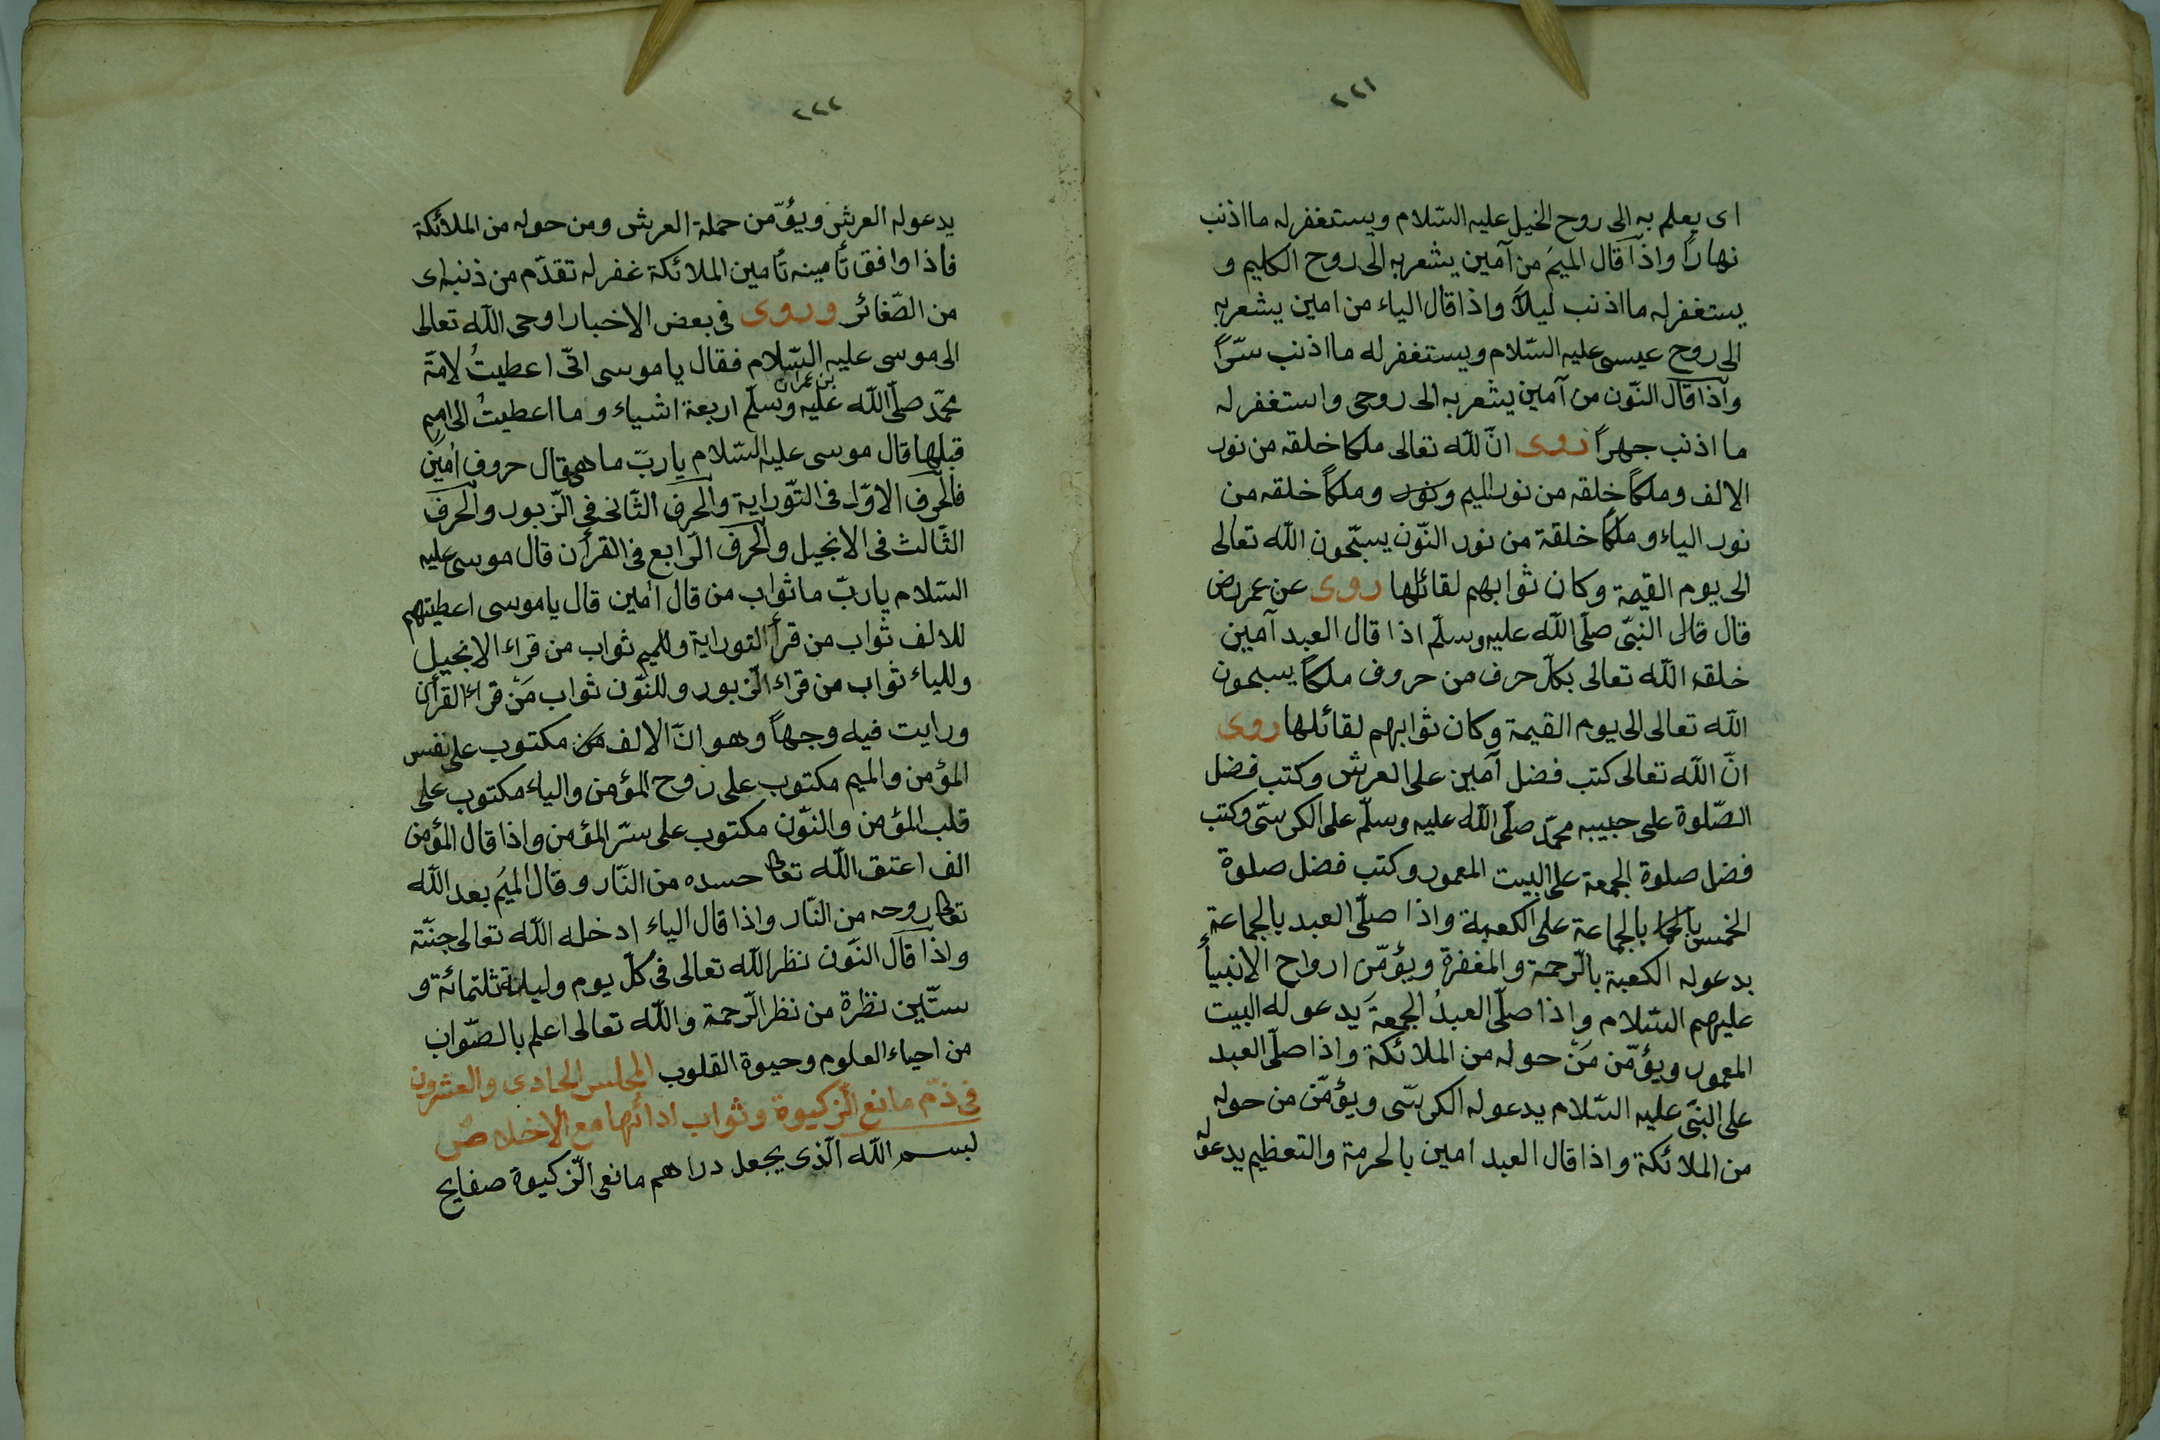 ٢٢١
اى يعلم به الى روح الخيل عليه السّلام ويستغفر له ما اذنب
نهارًا واذا قال الميمَ من آمين يشعر به الى روح الكليم و
يستغفر له ما اذنب ليلًا واذا قال الياء من امين يشعر به
الى روح عيسى عليه السّلام ويستغفر له ما اذنب سرّاً
وآذا قال النّون من آمين يشعر به الى روحى واستغفر له
ما اذنب جهراً روى انّ للّه تعالى ملكا خلقه من نور
الالف وملكاً خلقه من نور الميم ونور وملكاً خلقه من
نور الياء وملكاً خلقة من نور النّون يسبّحون اللّه تعالى
الى يوم القيمة وكان ثوابهم لقائلها روى عن عمر رض
قال قال النبّى صلّى اللّه عليه وسلّم اذا قال العبد آمين
خلقه اللّه تعالى بكلّ حرف من حروف ملكاً يسبحون
اللّه تعالى الى يوم القيمة وكان ثوابهم لقائلها روى
انّ اللّه تعالى كتب فضل آمين على العرش وكتب فضل
الصّلوة على حبيبه محمّد صلّى اللّه عليه وسلّم على الكرسّى وكتب
فضل صلوة الجمعة على البيت المعمور وكتب فضل صلوة
الخمس بالجما بالجماعة على الكعبة واذا صلّى العبد بالجماعة
يدعو له الكعبة بالرّحمة والمغفرة ويؤمّن ارواح الانبيأ
عليهم السّلام واذا صلّى العبدُ الجمعةَ يدعو له البيت
المعمور ويؤمّن مَنْ حوله من الملائكة واذا صلّى العبد
على النبّى عليه السّلام يدعو له الكرسّى ويؤمّن من حوله
من الملائكة واذا قال العبد امين بالحرمة والتعظيم يدعو له
٢٢٢
يدعو له العرش ويؤمّن حملة العرش ومن حوله من الملائكة
فاذا وافق تأمينه تأمين الملائكة غفر له تقدّم من ذنبه اى
من الصّغائر وروى فى بعض الاخبار اوحى اللّه تعالى
الى موسى عليه السّلام فقال يا موسى انّى اعطيتُ لامّة
بن عمران
محمّد صلّى اللّه عليه وسلّم اربعة اشياء وما اعطيتُ الى امم
قبلها قال موسى عليه السّلام يا ربّ ما هى قال حروف اٰمين
فالحرف الاوّل فى التّوراية والحرف الثّانى فى الزّبور والحرف
الثّالث فى الانجيل والحرف الرّابع فى القرأن قال موسى عليه
السّلام يا ربّ ما ثواب من قال اٰمين قال يا موسى اعطيتهم
للالف ثواب من قرأ التوراية وللميم ثواب من قراء الانجيل
وللياء ثواب من قراء الزّبور وللنّون ثواب مَنْ قراء القرأن
ورايت فيه وجهاً وهو انّ الالف من مكتوب على نفس
المؤمن والميم مكتوب على روح المؤمن والياء مكتوب على
قلب المؤمن والنّون مكتوب على سرّ المؤمن واذا قال المؤمن
الف اعتق اللّه تعالى حسده من النّار وقال الميمُ بعد اللّه
تعالى روحه من النّار واذا قال الياء ادخله اللّه تعالى جنّته
واذا قال النّون نظر اللّه تعالى فى كلّ يوم وليلة ثلثمائة و
ستّين نظرة من نظر الرّحمة واللّه تعالى اعلم بالصّواب
من احياء العلوم وحيوة القلوب المجلس الحادى والعشرون
فى ذمّ مانع الزّكيوة وثواب ادائها مع الاخلاص
بسم اللّه الّذى يجعل دراهم مانعى الزّكيوة صفايح